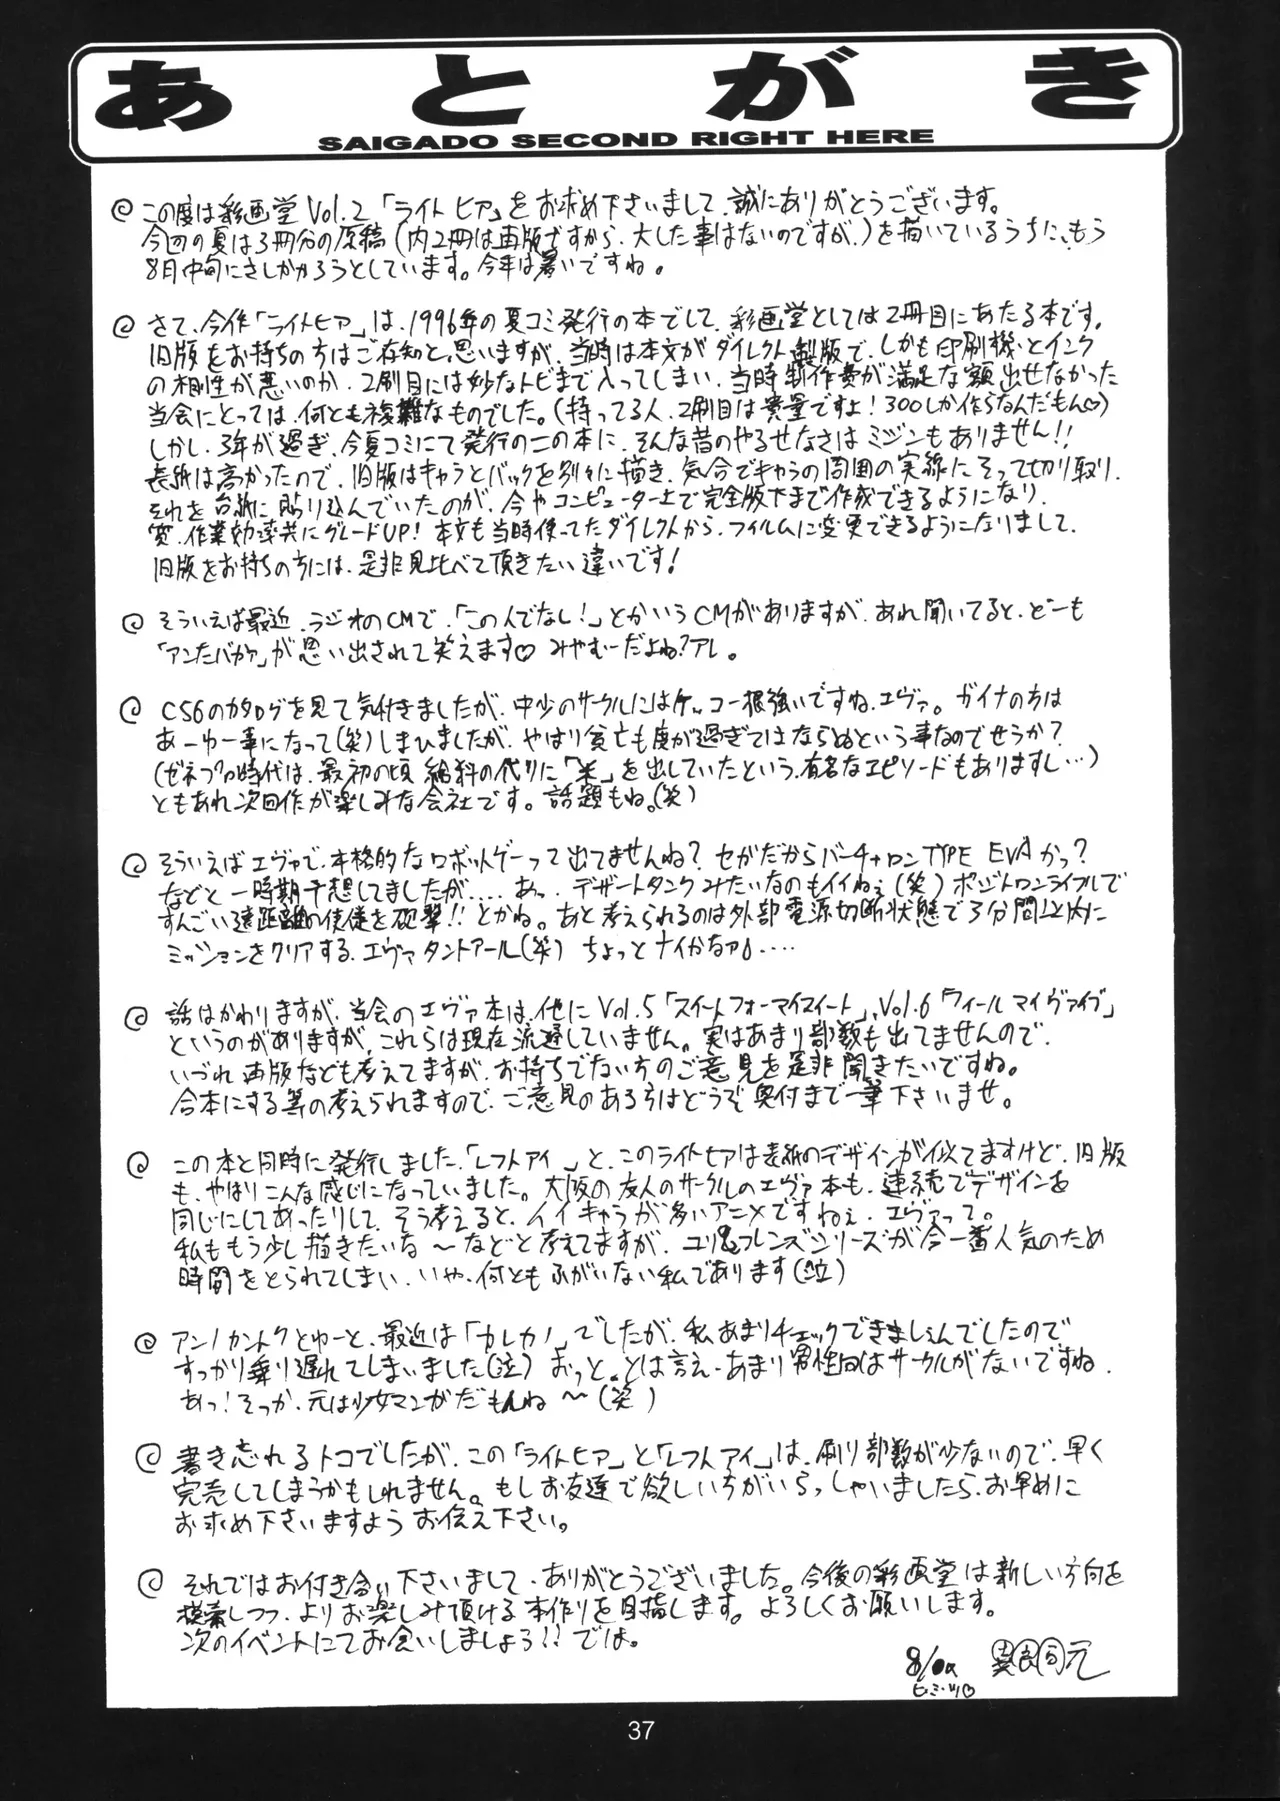 あとがき
SAIGADO SECOND RIGHT HERE
この度は彩画堂Vol.2「ライトヒア」をお求め下さいまして、誠にありがとうございます。
今回の夏は3冊分の原稿(内2冊は再版ですから、大した事はないのですが、)を描いているうちに、もう
8月中旬にさしかかろうとしています。今年は暑いですね。
さて、今作「ライトヒア」は、1996年の夏コミ発行の本でして、彩画堂としては2冊目にあたる本です。
旧版をお持ちの方はご存知と思いますが、当時は本文がダイレクト製版で、しかも印刷機とインク
の相性が悪いのか、2刷目には妙なトビまで入ってしまい、当時制作費が満足な額出せなかった
当会にとっては、何とも複雑なものでした。(持ってる人、2刷目は貴重ですよ!300しか作らなんだもん♡)
しかし、3年が過ぎ、今夏コミにて発行のこの本に、そんな昔のやるせなさはミジンもありません!!
表紙は高かったので、旧版はキャラとバックを別々に描き、気合でキャラの周囲の実線にそって切り取り、
それを台紙に貼り込んでいたのが、今やコンピューター上で完全版下まで作成できるようになり、
質、作業効率共にグレードUP!本文も当時使ってたダイレクトから、フィルムに変更できるようになりまして、
旧版をお持ちの方には、是非見比べて頂きたい違いです!
そういえば最近、ラジオのCMで、「この人でなし!」とかいうCMがありますが、あれ聞いてると、どーも
「アンたバカァ」が思い出されて笑えます♡みやむーだよね?アレ。
C56のカタログを見て気付きましたが、中少のサークルにはケッコー根強いですね、エヴァ。ガイナの方は
あーゆー事になって(笑)しまひましたが、やはり貧乏も度が過ぎてはならぬという事なのでせうか?
(ゼネプロ時代は、最初の頃給料の代りに「米」を出していたという、有名なエピソードもありますし…)
ともあれ次回作が楽しみな会社です。話題もね。(笑)
そういえばエヴァで、本格的なロボットゲーって出てませんね?セガだからバーチャロンTYPE EVAかっ?
などと一時期予想してましたが....あっ、デザートタンクみたいなのもイイねぇ(笑)ポジトロンライフルで
すんごい遠距離の使徒を砲撃!!とかね。あと考えられるのは外部電源切断状態で3分間以内に
ミッションをクリアする、エヴァタントアール(笑)ちょっとナイかなァ.....
話はかわりますが、当会のエヴァ本は、他にVol.5「スイートフォーマイスイート」、Vol.6「フィールマイヴァイブ」
というのがありますが、これらは現在流通していません。実はあまり部数も出てませんので、
いづれ再版なども考えてますが、お持ちでない方のご意見を是非聞きたいですね。
合本にする等の考えられますので、ご意見のある方はどうぞ奥付まで一筆下さいませ。
この本と同時に発行しました、「レフトアイ」と、このライトヒアは表紙のデザインが似てますけど、旧版
も、やはりこんな感じになっていました。大阪の友人のサークルのエヴァ本も、連続でデザインを
同じにしてあったりして、そう考えると、イイキャラが多いアニメですねぇ、エヴァって。
私ももう少し描きたいな〜などと考えてますが、ユリ&フレンズシリーズが今一番人気のため
時間をとられてしまい、いや、何ともふがいない私であります(泣)
アンノカントクとゆーと、最近は「カレカノ」でしたが、私あまりチェックできましぇんでしたので
すっかり乗り遅れてしまいました(泣)おっと、とは言え、あまり男性向はサークルがないですね、
あっ!そっか、元は少女マンガだもんね〜(笑)
書き忘れるトコでしたが、この「ライトヒア」と「レフトアイ」は、刷り部数が少ないので、早く
完売してしまうかもしれません。もしお友達で欲しい方がいらっしゃいましたら、お早めに
お求め下さいますようお伝え下さい。
それではお付き合い下さいまして、ありがとうございました。今後の彩画堂は新しい方向を
模索しつつ、よりお楽しみ頂ける本作りを目指します。よろしくお願いします。
次のイベントにてお会いしましょう!!では。
37